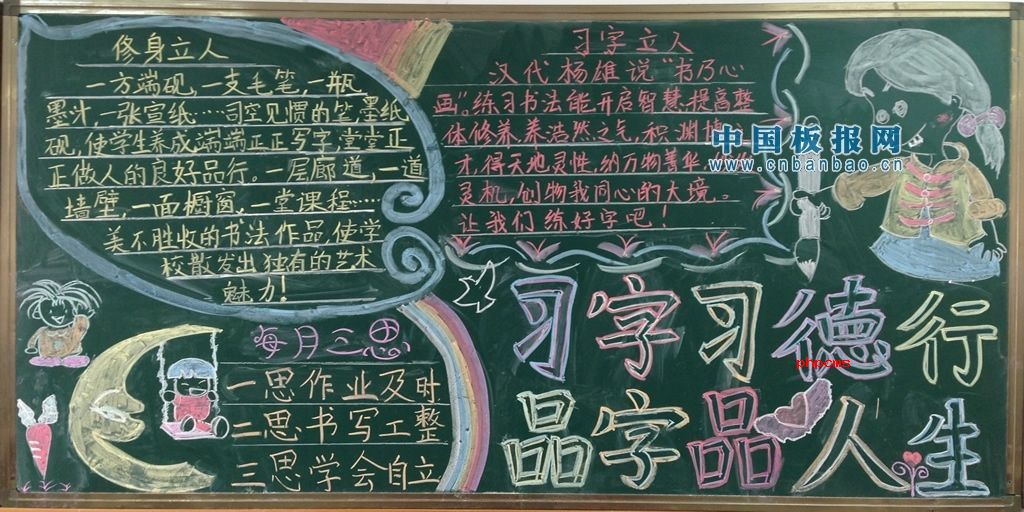 修身立人
一方端砚,一支毛笔,一瓶
墨汁,一张宣纸……司空见惯的笔墨纸
砚,使学生养成端端正正写字,堂堂正
正做人的良好品行。一层廊道,一道
墙壁,一面橱窗,一堂课程……
美不胜收的书法作品,使学
校散发出独有的艺术
魅力!
习字立人
汉代杨雄说“书乃心
画”。练习书法能开启智慧,提高整
体修养,养浩然之气,积渊博
才,得天地灵性,纳万物菁华,
灵机,创物我同心的大境。
让我们练好字吧!
中国板报网
www.cnbanbao.cn
每月三思
一思作业及时
二思书写工整
三思学会自立
习字习德行
phpcms
品字品人生